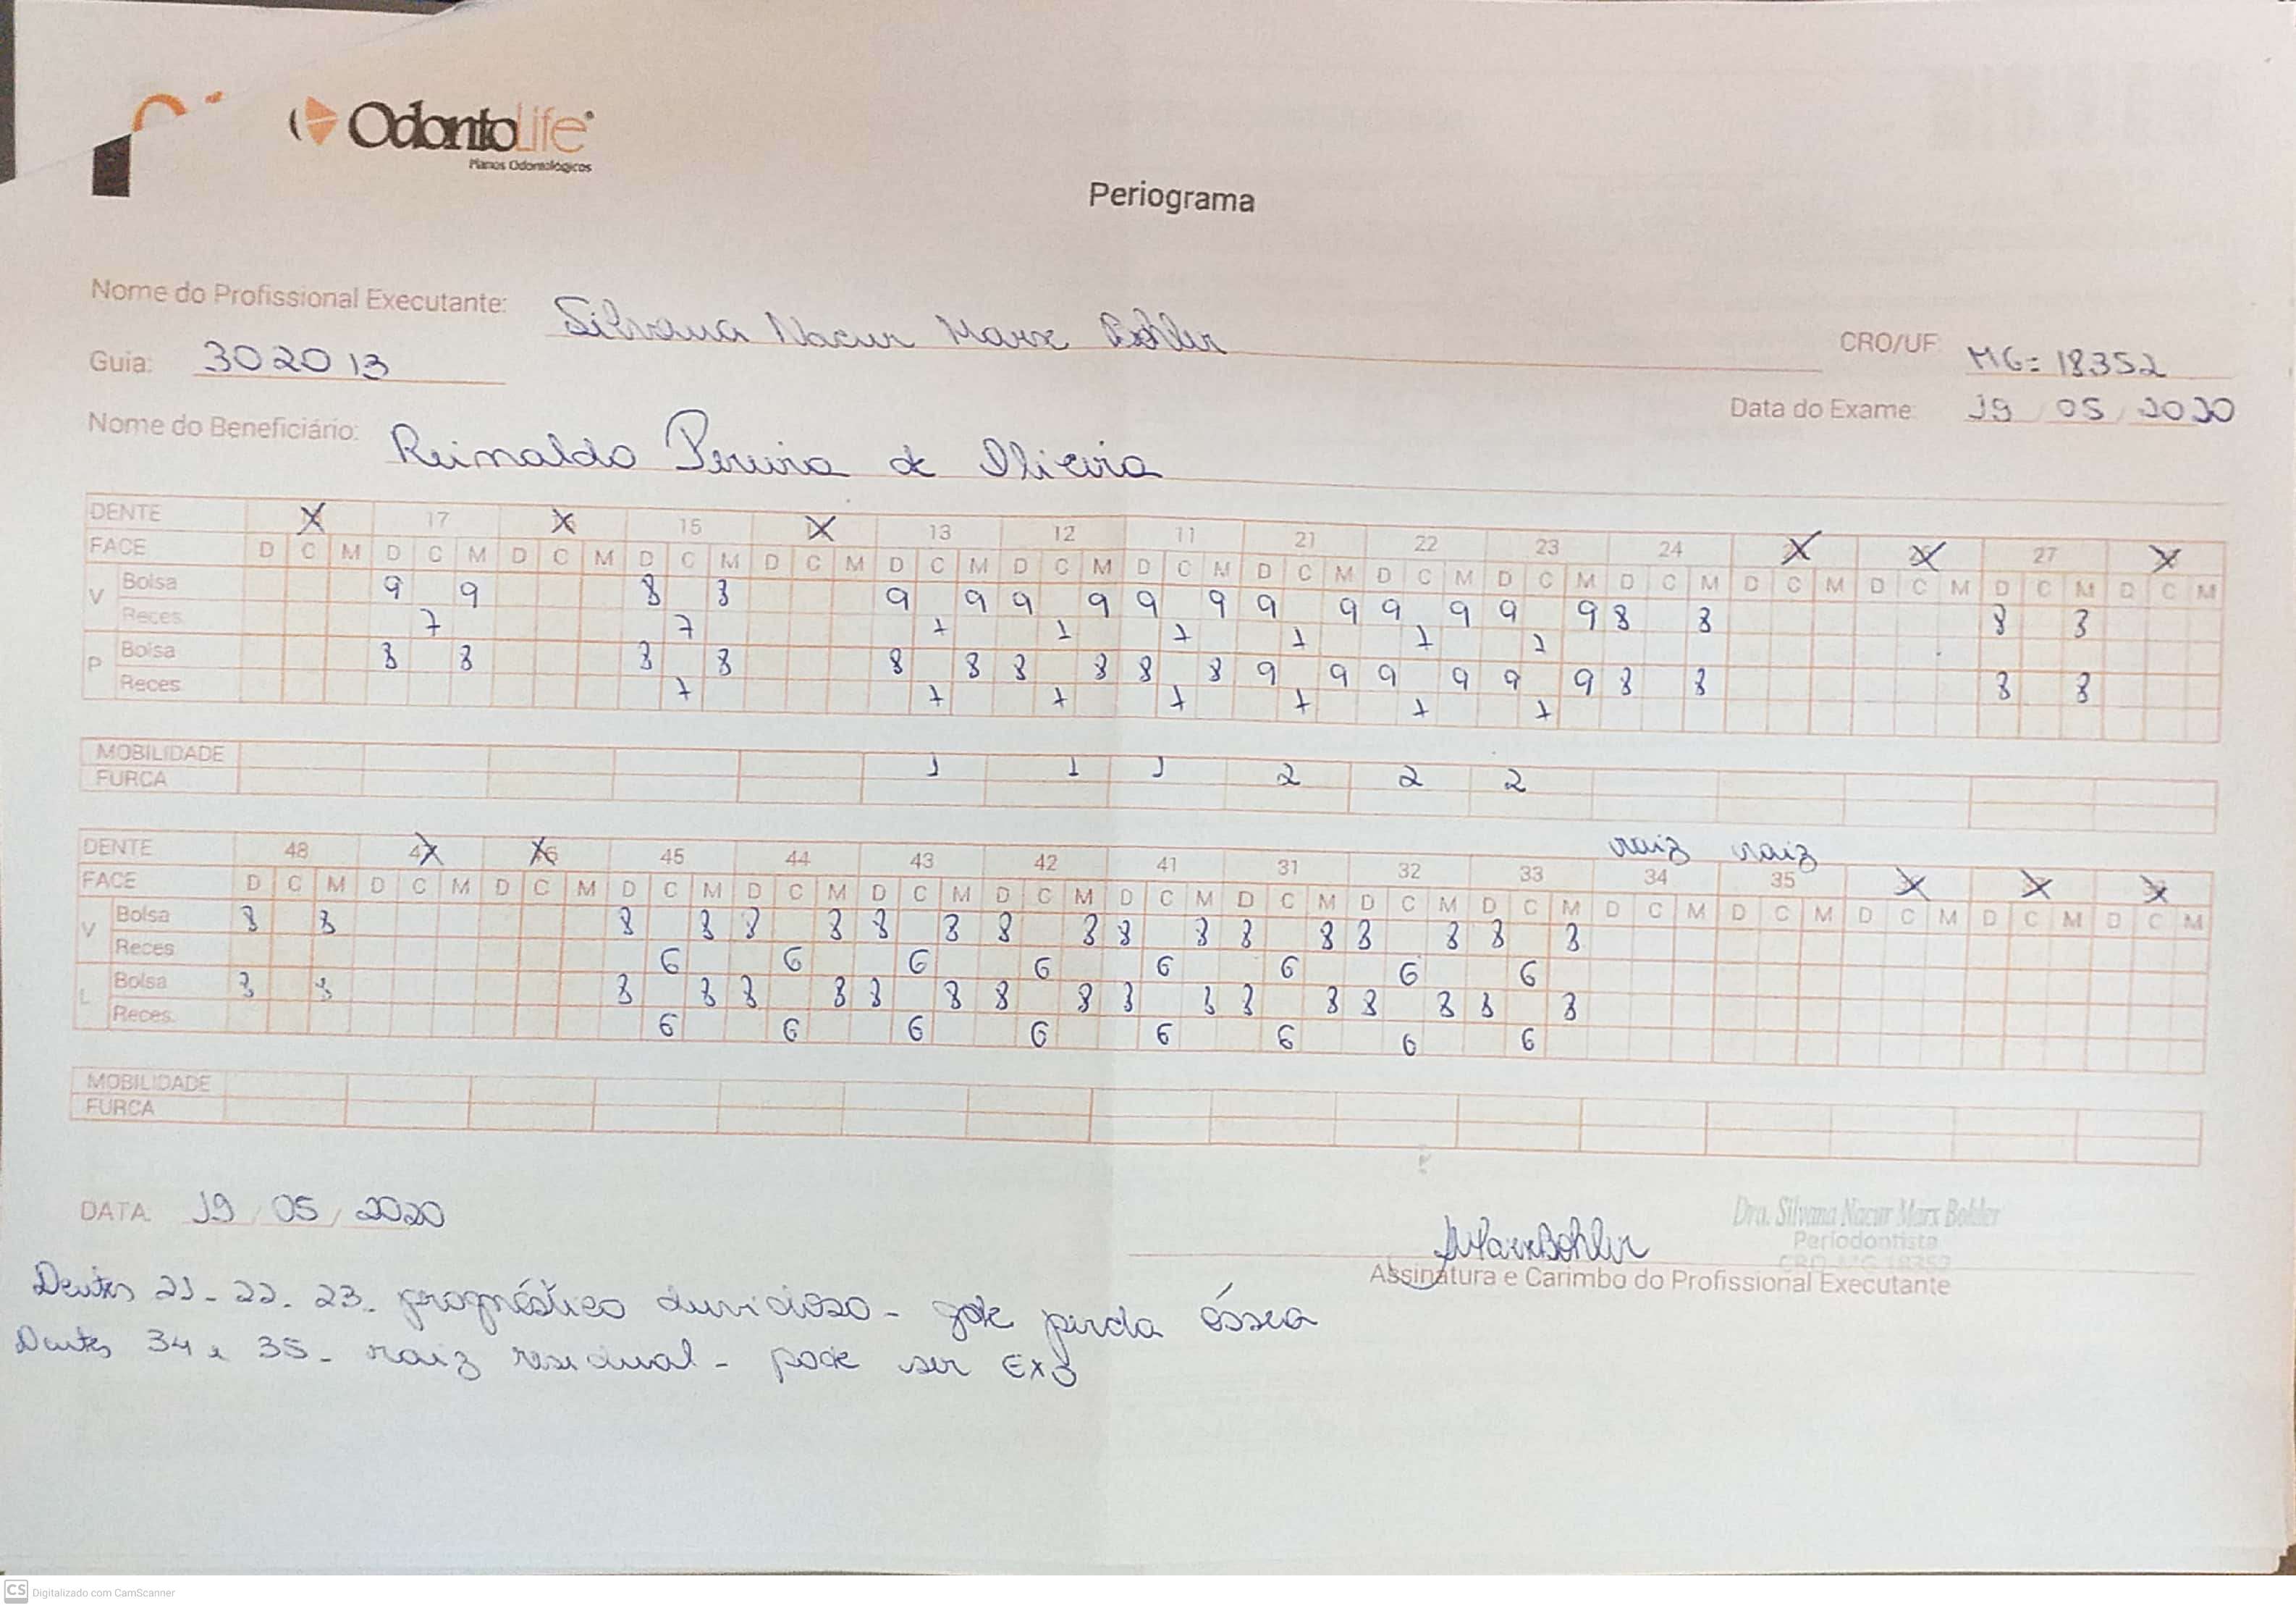 OdontoLife®
Planos Odontológicos
Periograma
Nome do Profissional Executante: Silvana Nacur Marx Bohler
CRO/UF: MG= 18352
Guia: 302013
Data do Exame: 19 / 05 / 2020
Nome do Beneficiário: Reinaldo Pereira de Oliveira
DENTE X 17 X 15 X 13 12 11 21 22 23 24 X X 27 X
FACE D C M D C M D C M D C M D C M D C M D C M D C M D C M D C M D C M D C M D C M D C M D C M D C M
V Bolsa 9 9 8 8 9 9 9 9 9 9 9 9 9 9 9 9 8 8 8 8
Reces. 7 7 7 7 7 7 7 7
P Bolsa 8 8 8 8 8 8 8 8 8 8 9 9 9 9 9 9 8 8 8 8
Reces. 7 7 7 7 7 7 7
MOBILIDADE 1 1 1 2 2 2
FURCA
raiz raiz
DENTE 48 47 46 45 44 43 42 41 31 32 33 34 35 X X X
FACE D C M D C M D C M D C M D C M D C M D C M D C M D C M D C M D C M D C M D C M D C M D C M D C M
V Bolsa 8 8 8 8 8 8 8 8 8 8 8 8 8 8 8 8 8 8
Reces. 6 6 6 6 6 6 6 6
L Bolsa 8 8 8 8 8 8 8 8 8 8 8 8 8 8 8 8 8 8
Reces. 6 6 6 6 6 6 6 6
MOBILIDADE
FURCA
DATA 19 / 05 / 2020
Dra. Silvana Nacur Marx Bohler
Periodontista
CRO-MG 18352
MarxBohler
Assinatura e Carimbo do Profissional Executante
Dentes 21 - 22 - 23 - prognóstico duvidoso - gde perda óssea
Dentes 34 e 35 - raiz residual - pode ser EXO
CS Digitalizado com CamScanner